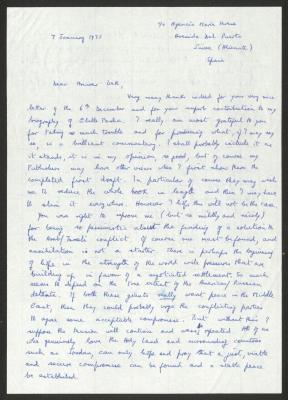 c/o Agencia Maria Luisa
Avenida Del Puerto
Javea (Alicante)
Spain
7 January 1975
Dear Anwar Bek,
Very many thanks indeed for your very nice
letter of the 6th December and for your superb contribution to my
biography of Glubb Pasha. I really am most grateful to you
for taking so much trouble and for producing what, if I may say
so, is a brilliant commentary. I shall probably include it as
it stands, it is in my opinion, so good, but of course my
Publishers may have other views when I first show them the
completed first draft. In particular of course they may wish
me to reduce the whole book in length and then I may have
to skim it everywhere. However I hope this will not be the case.
You were right to reprove me (but so mildly and nicely)
for being so pessimistic about the finding of a solution to
the Arab/Israeli conflict. Of course one must be found, and
annihilation is not a starter. There is perhaps the beginning
of hope in the strength of the world wide pressures that are
building up in favour of a negotiated settlement. So much
seems to depend on the true extent of the American/Russian
detente. If both these giants really want peace in the Middle
East, then they could probably urge the conflicting parties
to agree some acceptable compromise. But without this I
suppose the tension will continue and wars repeated. All of us
who genuinely love the Holy Land and surrounding countries
such as Jordan, can only hope and pray that a just, viable
and secure compromise can be found and a stable peace
be established.